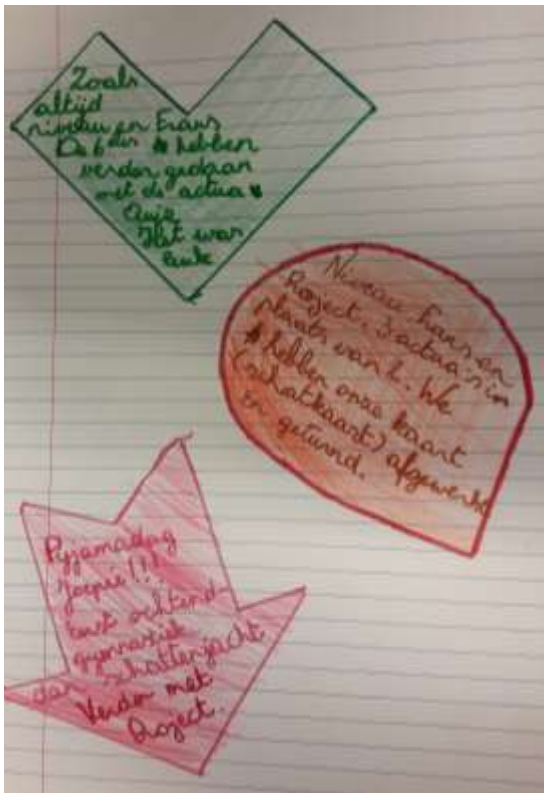 Zoals
altijd
niveau en Frans
De 6des hebben
verder gedaan
met de actua
Quiz
Het was
leuk
Niveau Frans en
Project. 3 actua's in
plaats van 2. We
hebben onze kaart
(schatkaart) afgewerkt
En geturnd.
Pyjamadag
joepie!!!
Eerst ochtend-
gymnastiek
dan schattenjacht
Verder met
Project.